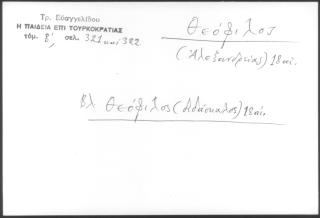 Τρ. Εὐαγγελίδου
Η ΠΑΙΔΕΙΑ ΕΠΙ ΤΟΥΡΚΟΚΡΑΤΙΑΣ
τόμ. Β΄, σελ. 321 και 322
Θεόφιλος
(Ἀλεξανδρείας) 18 αἰ.
Βλ Θεόφιλος (διδάσκαλος) 18 αἰ.